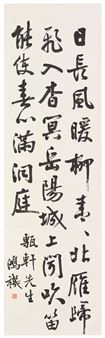 日長風暖柳青々北雁歸
飛入杳冥岳陽城上聞吹笛
能使春心滿洞庭
軒先生
鴻